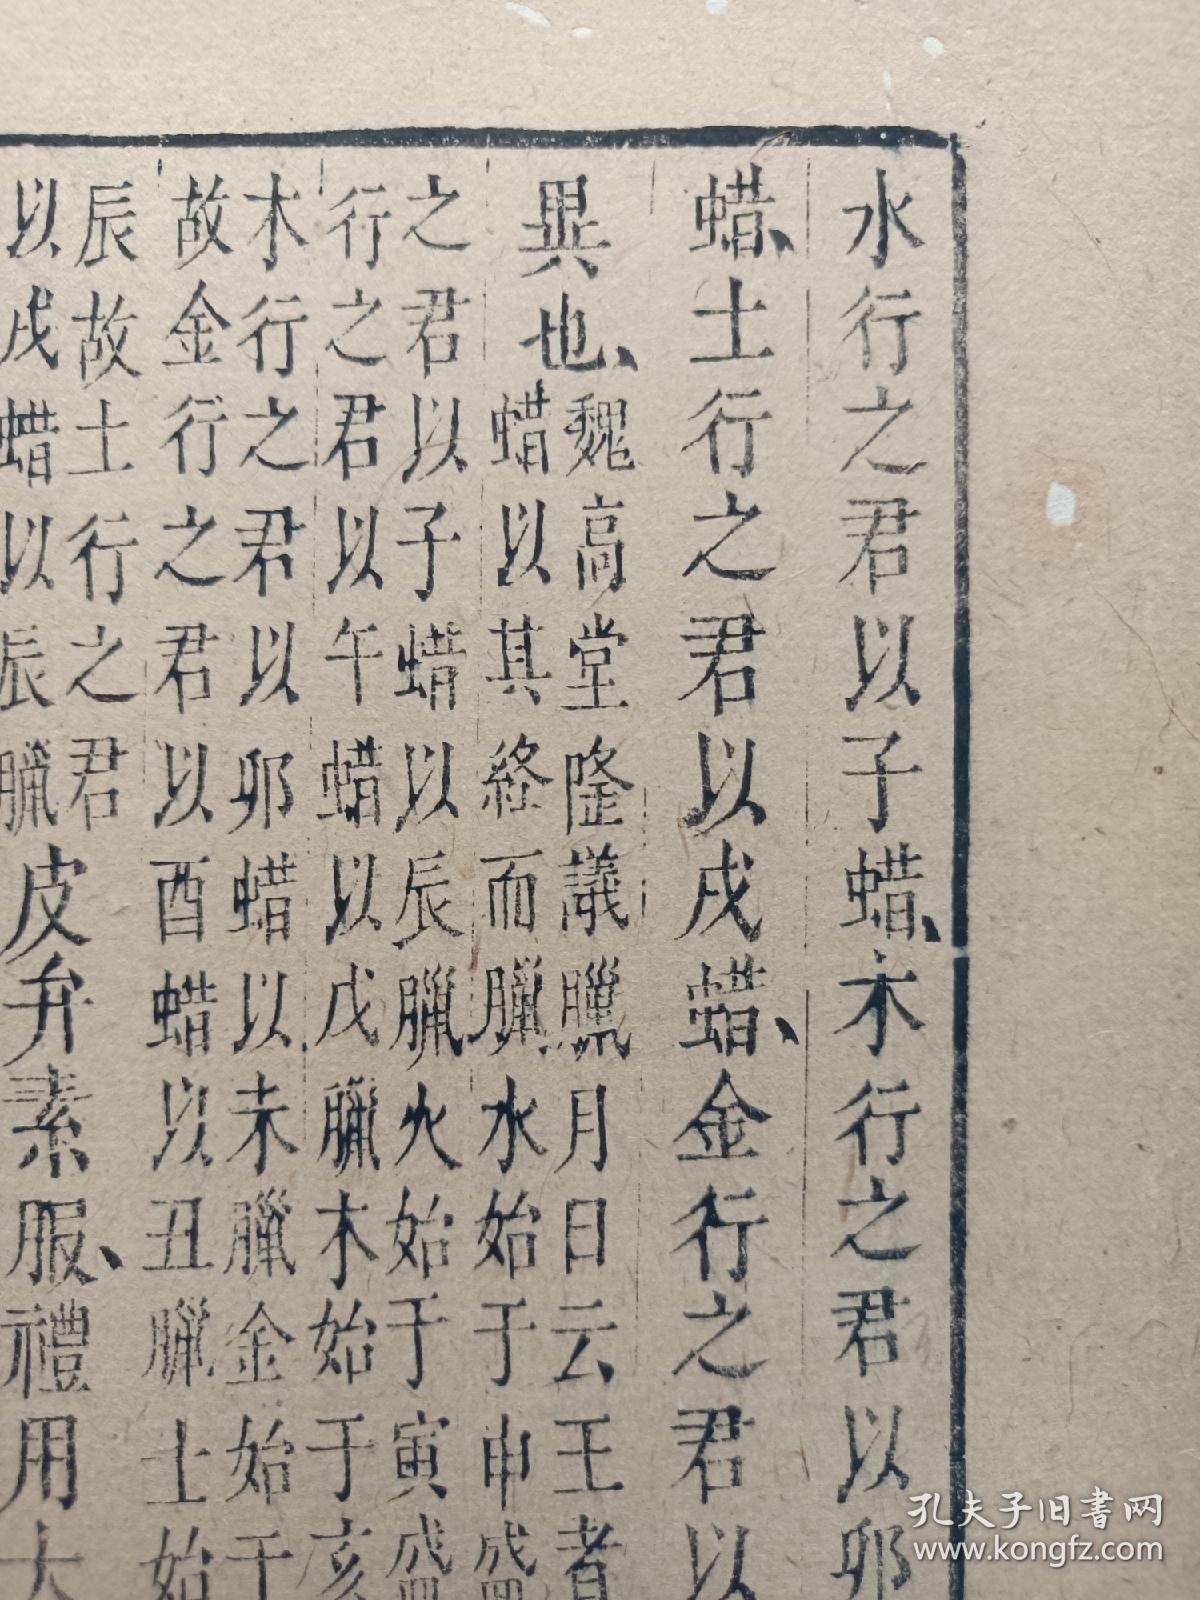 水行之君以子蜡、木行之君以卯
蜡、土行之君以戌蜡、金行之君以
異也、
魏高堂隆議臘月日云王者
蜡以其終而臘水始于申盛
之君以子蜡以辰臘火始于寅盛
行之君以午蜡以戊臘木始于亥
木行之君以卯蜡以未臘金始于
故金行之君以酉蜡以丑臘土始
辰故土行之君
以戌蜡以辰臘
皮弁素服、禮用大
孔夫子旧书网
www.kongfz.com